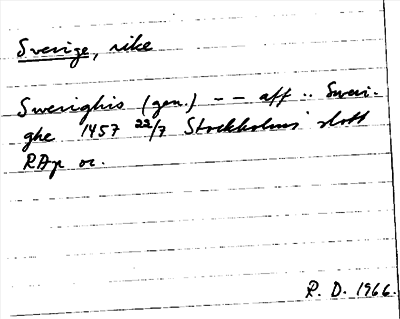 Sverige, rike
Swerighis (gen.) -- aff .. Sweri-
ghe 1457 22/7 Stockholms slott
RAp or.
R. D. 1966.